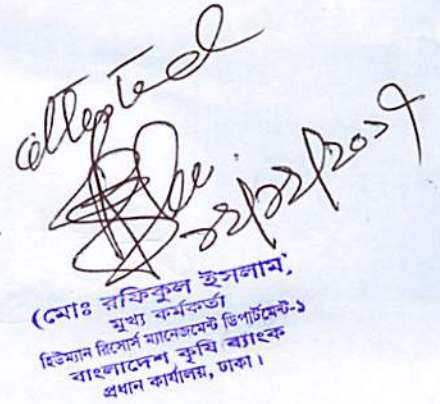 attested
১২/১২/২০১৭
(মোঃ রফিকুল ইসলাম)
মুখ্য কর্মকর্তা
হিউম্যান রিসোর্স ম্যানেজমেন্ট ডিপার্টমেন্ট-১
বাংলাদেশ কৃষি ব্যাংক
প্রধান কার্যালয়, ঢাকা।